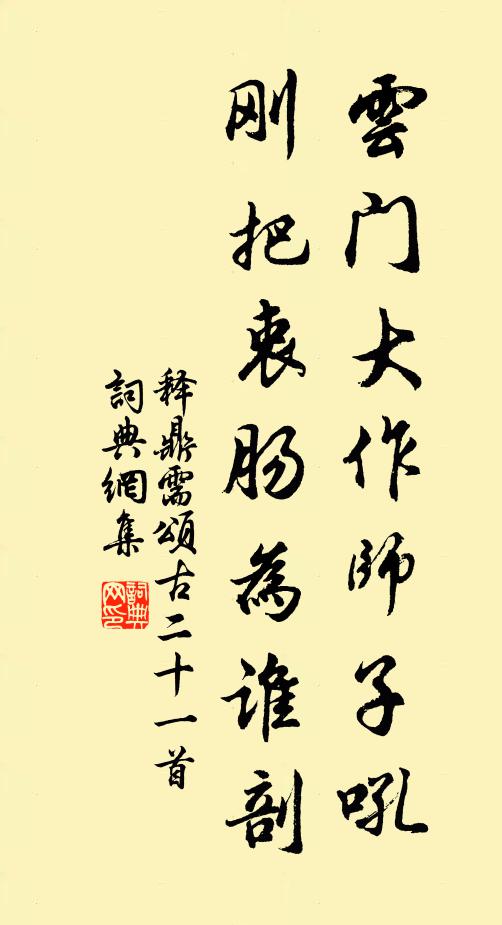 雲门大作師子吼
刚把衷肠為谁剖
释鼎需頌古二十一首
詞典網集
詞典网印